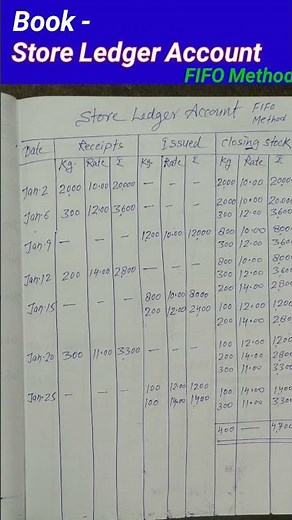 Book -
Store Ledger Account
FIFO Method
Store Ledger Account FIFO Method
Date Receipts Issued Closing Stock
Kg. Rate £ Kg. Rate £ Kg. Rate £
Jan.2 2000 10.00 20000 — — — 2000 10.00 20,000
2000 10.00 20,000
Jan.6 300 12.00 3600 — — — 300 12.00 3600
Jan.9 — — — 1200 10.00 12000 800 10.00
300 12.00 360
800 10.00
Jan.12 200 14.00 2800 — — — 300 12.00 360
200 14.00 280
Jan.15 — — — 800 10.00 8000
200 12.00 2400 100 12.00 120
200 14.00 280
100 12.00 120
Jan.20 300 11.00 3300 — — — 200 14.00 280
300 11.00 330
Jan.25 — — — 100 12.00 1200 100 14.00 1400
100 14.00 1400 300 11.00 330
400 — 4,700